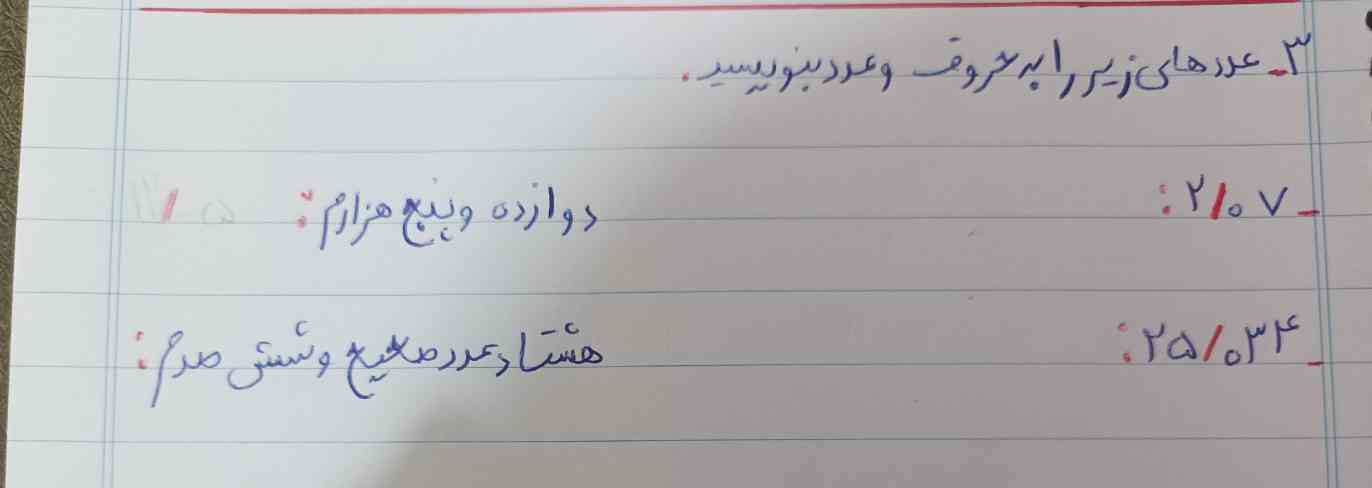 ۳_ عددهای زیر را به حروف و عدد بنویسید.
_ ۲/۰۷ : دوازده و پنج هزارم :
_ ۲۵/۰۳۴ : هشتاد عدد صحیح و شش صدم :